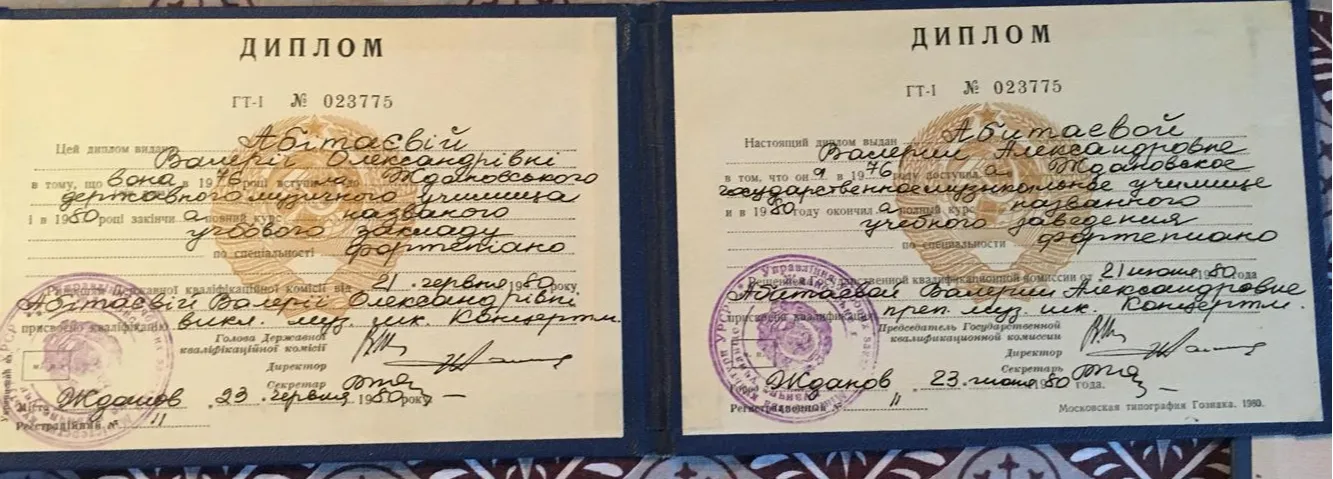 ДИПЛОМ
ГТ-I № 023775
Цей диплом видано Абітаєвій
Валерії Олександрівні
в тому, що вона в 1976 році вступила до Ждановського
державного музичного училища
і в 1980 році закінчила повний курс названого
учбового закладу
по спеціальності фортепіано
Державної кваліфікаційної комісії від 21 червня 1980 року
Абітаєвій Валерії Олександрівні
присвоєно кваліфікацію викл. муз. шк. Концертм.
Голова Державної
кваліфікаційної комісії
Директор
Секретар
Місто Жданов 23 червня 1980 року
Реєстраційний № 11
ДИПЛОМ
ГТ-I № 023775
Настоящий диплом выдан Абитаевой
Валерии Александровне
в том, что она в 1976 году поступила в Ждановское
государственное музыкальное училище
и в 1980 году окончила полный курс названного
учебного заведения
по специальности фортепиано
Решением Государственной квалификационной комиссии от 21 июня 1980 года
Абитаевой Валерии Александровне
присвоена квалификация преп. муз. шк. Концертм.
Председатель Государственной
квалификационной комиссии
Директор
Секретарь
Город Жданов 23 июня 1980 года.
Регистрационный № 11
Московская типография Гознака. 1980.